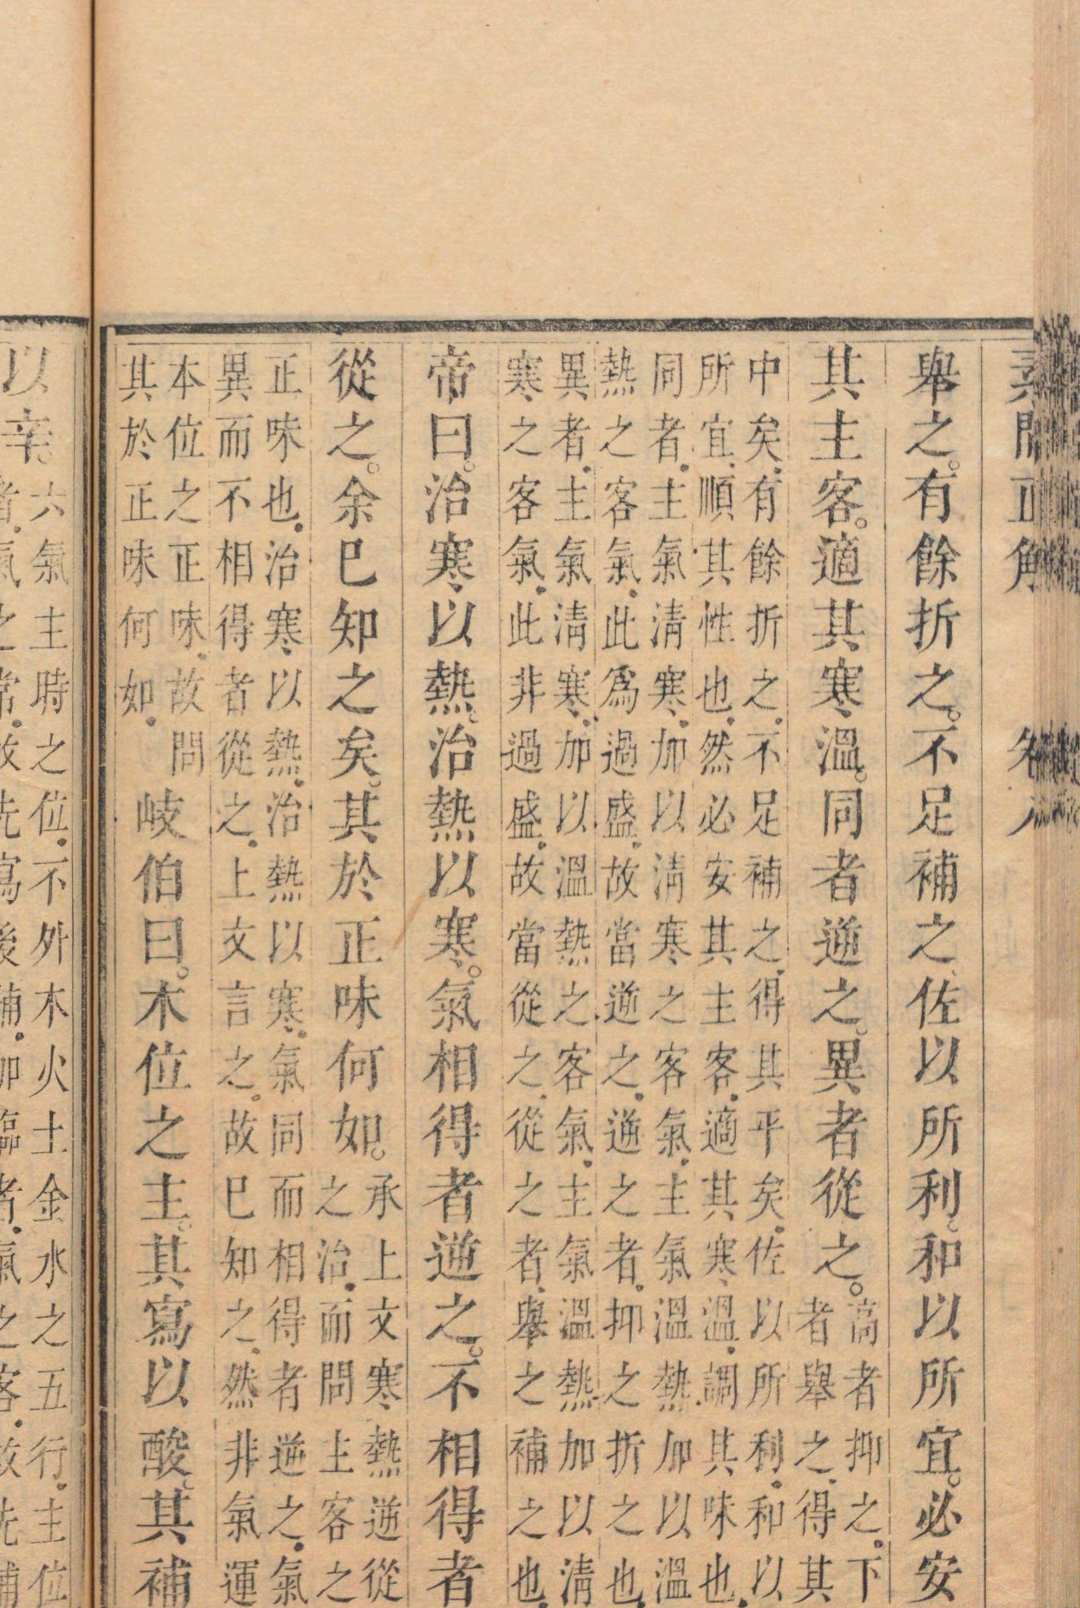 素問正解 卷八
舉之。有餘折之。不足補之、佐以所利。和以所宜。必安
其主客。適其寒溫。同者逆之。異者從之。
高者抑之。下
者舉之、得其
中矣。有餘折之、不足補之、得其平矣。佐以所利、和以
所宜、順其性也、然必安其主客、適其寒溫、調其味也、
同者、主氣淸寒、加以淸寒之客氣、主氣溫熱、加以溫
熱之客氣、此爲過盛、故當逆之、逆之者、抑之折之也、
異者、主氣淸寒、加以溫熱之客氣、主氣溫熱、加以淸
寒之客氣、此非過盛、故當從之、從之者、舉之補之也、
帝曰。治寒以熱。治熱以寒。氣相得者逆之。不相得者
從之。余已知之矣。其於正味何如。
承上文寒熱逆從
之治、而問主客之
正味也、治寒以熱、治熱以寒、氣同而相得者逆之、氣
異而不相得者從之、上文言之、故已知之、然非氣運
本位之正味、故問
其於正味何如、
岐伯曰。木位之主。其寫以酸。其補
以辛。
六氣主時之位、不外木火土金水之五行、主位
者、氣之常、故先寫後補、加臨者、氣之客、故先補